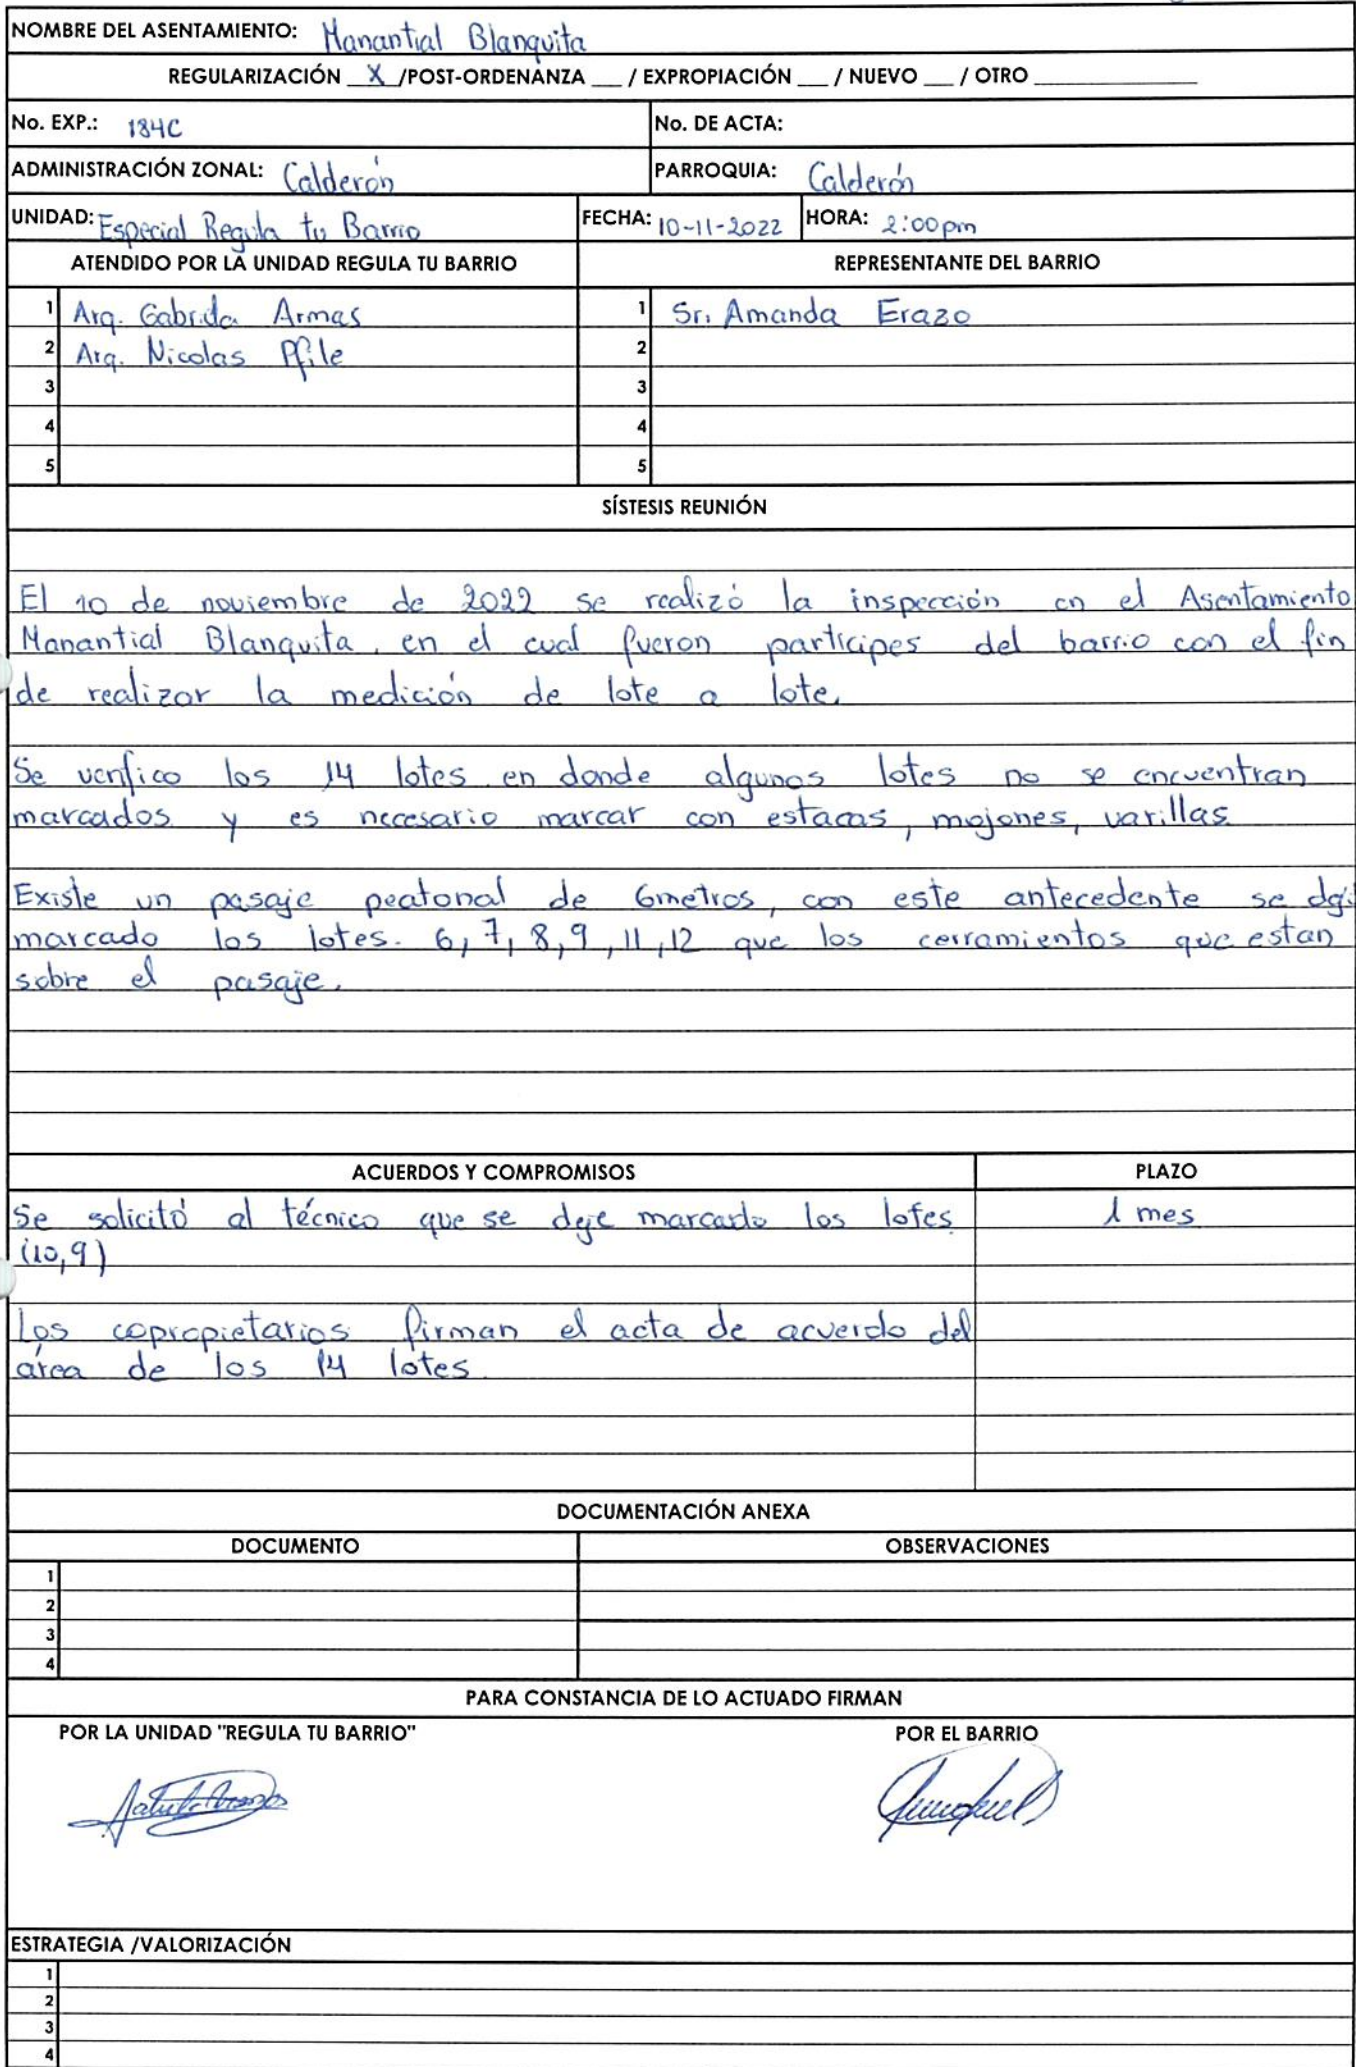 NOMBRE DEL ASENTAMIENTO: Manantial Blanquita
REGULARIZACIÓN X /POST-ORDENANZA ___ / EXPROPIACIÓN ___ / NUEVO ___ / OTRO ___
No. EXP.: 184C No. DE ACTA:
ADMINISTRACIÓN ZONAL: Calderón PARROQUIA: Calderón
UNIDAD: Especial Regula tu Barrio FECHA: 10-11-2022 HORA: 2:00pm
ATENDIDO POR LA UNIDAD REGULA TU BARRIO REPRESENTANTE DEL BARRIO
1 Arq. Gabriela Armas 1 Sr. Amanda Erazo
2 Arq. Nicolas 2
3 3
4 4
5 5
SÍSTESIS REUNIÓN
El 10 de noviembre de 2022 se realizó la inspección en el Asentamiento
Manantial Blanquita, en el cual fueron participes del barrio con el fin
de realizar la medición de lote a lote.
Se verifico los 14 lotes en donde algunos lotes no se encuentran
marcados y es necesario marcar con estacas, mojones, varillas
Existe un pasaje peatonal de 6metros, con este antecedente se
marcado los lotes. 6, 7, 8, 9, 11, 12 que los cerramientos que estan
sobre el pasaje.
ACUERDOS Y COMPROMISOS PLAZO
Se solicitó al técnico que se deje marcado los lotes 1 mes
(10,9)
Los copropietarios firman el acta de acuerdo del
área de los 14 lotes
DOCUMENTACIÓN ANEXA
DOCUMENTO OBSERVACIONES
1
2
3
4
PARA CONSTANCIA DE LO ACTUADO FIRMAN
POR LA UNIDAD "REGULA TU BARRIO" POR EL BARRIO
ESTRATEGIA /VALORIZACIÓN
1
2
3
4